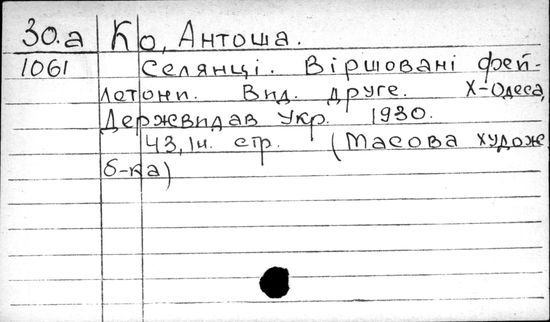 30.а Ко, Антоша.
1061 Селянці. Віршовані фей-
летони. Вид. друге. Х-Одеса,
Держвидав Укр. 1930.
43, 1н. стр. (Масова худож.
б-ка)